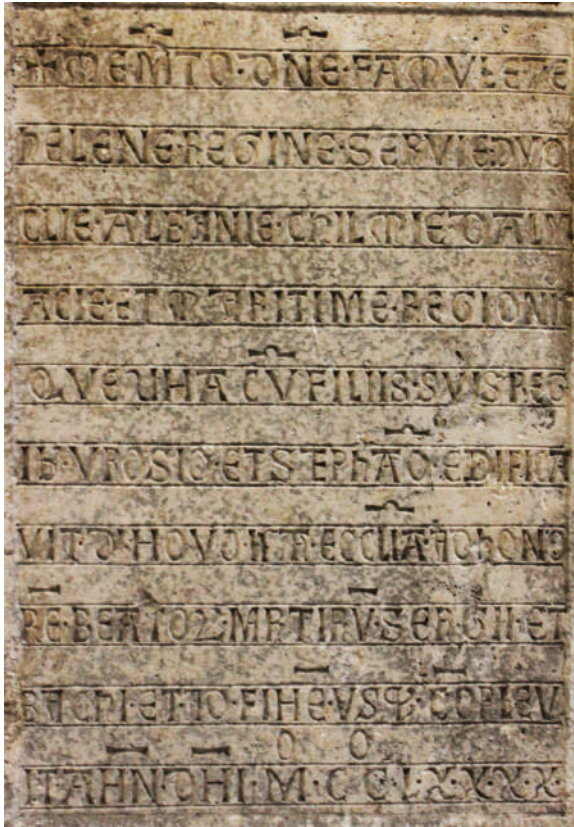 +MEMTO·DNE·FAMVLETE
hELENE·REGINE·SERVIE·DYO
CLIE·ALBANIE·ChILMIE·DALM
ACIE·ET MARITIME·REGIONIS
QVE UNA CV FILIIS·SVIS REG
Ib·VROSIO·ET STEPhAO·EDIFICA
VIT·D'NOVO·ISTA·ECCLIA·ADhONO
RE·BEATOꝜ·MRTIRV·SERGII·ET
BAChI·ET IO·FINE·VSꝙ·COPLEV
IT ANN·DNI·M·CC·L·X·X·X·X